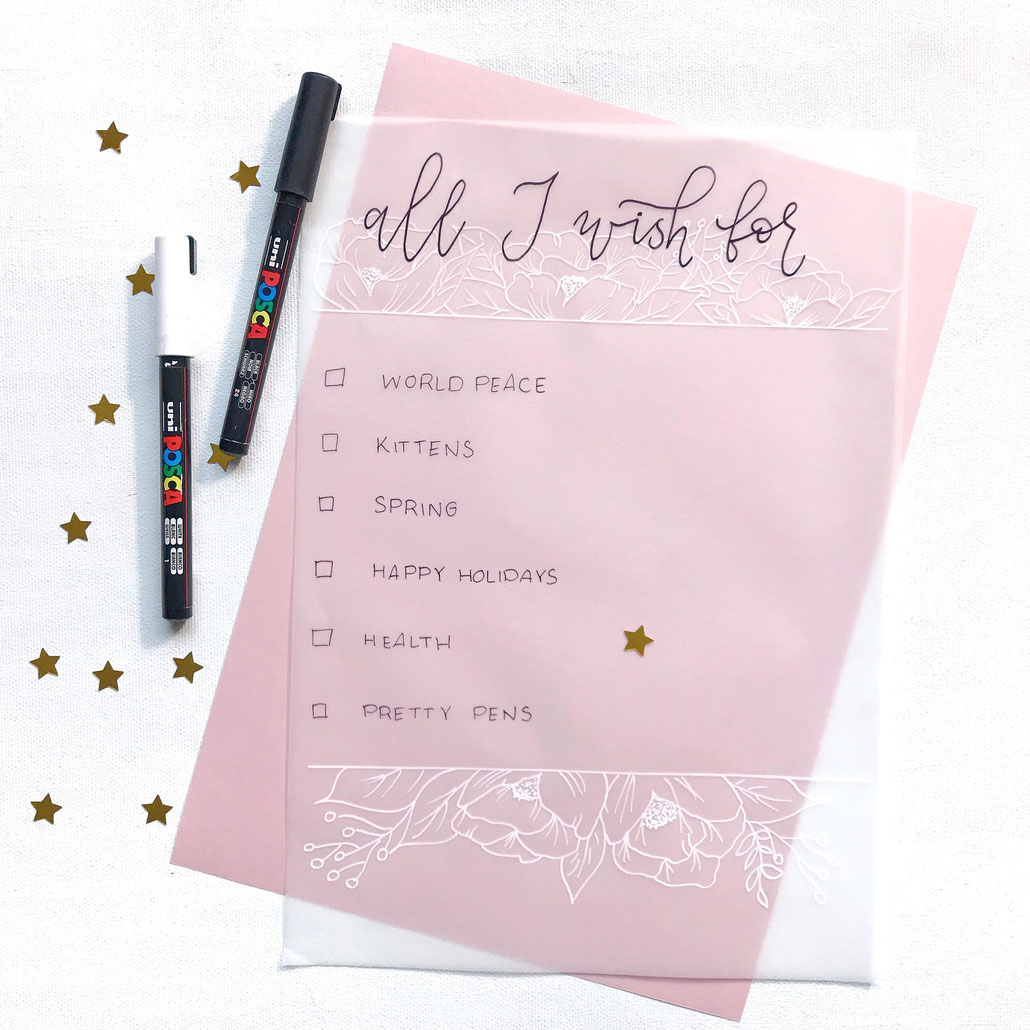 all I wish for
WORLD PEACE
KITTENS
SPRING
HAPPY HOLIDAYS
HEALTH
PRETTY PENS
uni POSCA
uni POSCA